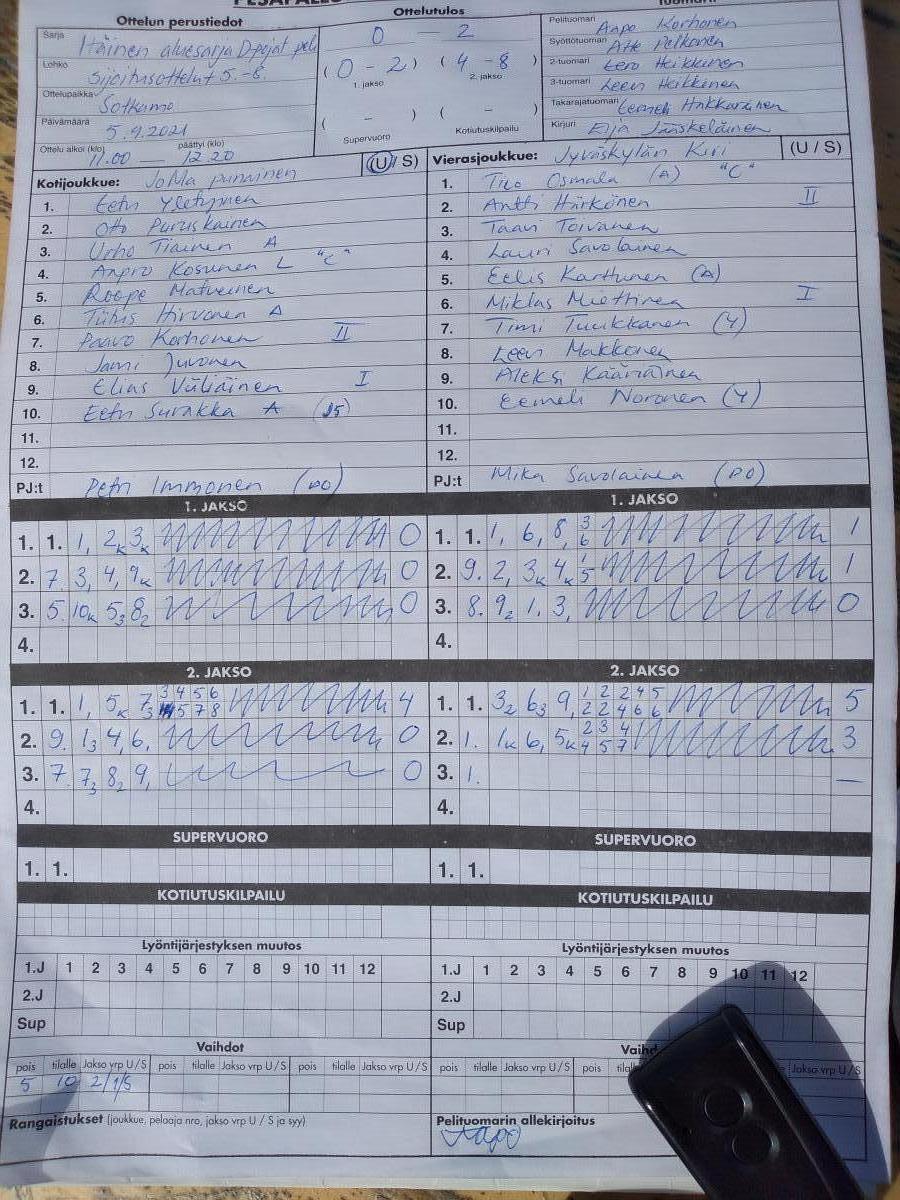 Ottelun perustiedot
Ottelutulos
Sarja Itäinen aluesarja D-pojat
Lohko Sijoitusottelut 5.-8.
Ottelupaikka Sotkamo
Päivämäärä 5.9.2021
Ottelu alkoi (klo) 11.00 — päättyi (klo) 12.20
0 — 2
(0 - 2) (4 - 8)
1. jakso 2. jakso
( - ) ( - )
Supervuoro Kotiutuskilpailu
Pelituomari Aapo Korhonen
Syöttötuomari Atte Pelkonen
2-tuomari Eero Heikkinen
3-tuomari Leevi Heikkinen
Takarajatuomari Eemeli Hakkarainen
Kirjuri Eija Jääskeläinen
Kotijoukkue: JoMa punainen (U / S)
1. Eetu Yletyinen
2. Otto Puruskainen
3. Urho Tiainen A
4. Aapro Kosunen L "C"
5. Roope Matveinen
6. Hirvonen A
7. Paavo Korhonen II
8. Jami Juvonen
9. Elias Väliäinen I
10. Eetu Surakka A (J5)
11.
12.
PJ:t Petri Immonen (PO)
Vierasjoukkue: Jyväskylän Kiri (U / S)
1. Tino Osmala (A) "C"
2. Antti Härkönen II
3. Taavi Toivanen
4. Lauri Savolainen
5. Eelis Karttunen (A)
6. Miklas Miettinen I
7. Timi Tuukkanen (Y)
8. Leevi Makkonen
9. Aleksi Kääriäinen
10. Eemeli Noronen (Y)
11.
12.
PJ:t Mika Savolainen (PO)
1. JAKSO
1. 1. 1, 2K 3K 0
2. 7. 3, 4, 9K 0
3. 5. 10K 53 82 0
4.
1. JAKSO
1. 1. 1, 6, 8, 3 6 1
2. 9. 2, 3K 4K 1 5 1
3. 8. 92 1, 3, 0
4.
2. JAKSO
1. 1. 1, 5K 73 3 4 5 6 5 7 8 4
2. 9. 13 4, 6, 0
3. 7. 73 82 9, 0
4.
2. JAKSO
1. 1. 32 63 9, 1 2 2 4 5 2 2 4 6 6 5
2. 1. 1K 6, 5K 2 3 4 4 5 7 3
3. 1. —
4.
SUPERVUORO
1. 1.
SUPERVUORO
1. 1.
KOTIUTUSKILPAILU
KOTIUTUSKILPAILU
Lyöntijärjestyksen muutos
1.J 1 2 3 4 5 6 7 8 9 10 11 12
2.J
Sup
Lyöntijärjestyksen muutos
1.J 1 2 3 4 5 6 7 8 9 10 11 12
2.J
Sup
Vaihdot
pois tilalle Jakso vrp U / S pois tilalle Jakso vrp U / S pois tilalle Jakso vrp U / S
5 10 2/1/S
pois tilalle Jakso vrp U / S pois tilalle Jakso vrp U/S
Rangaistukset (joukkue, pelaaja nro, jakso vrp U / S ja syy)
Pelituomarin allekirjoitus
Aapo